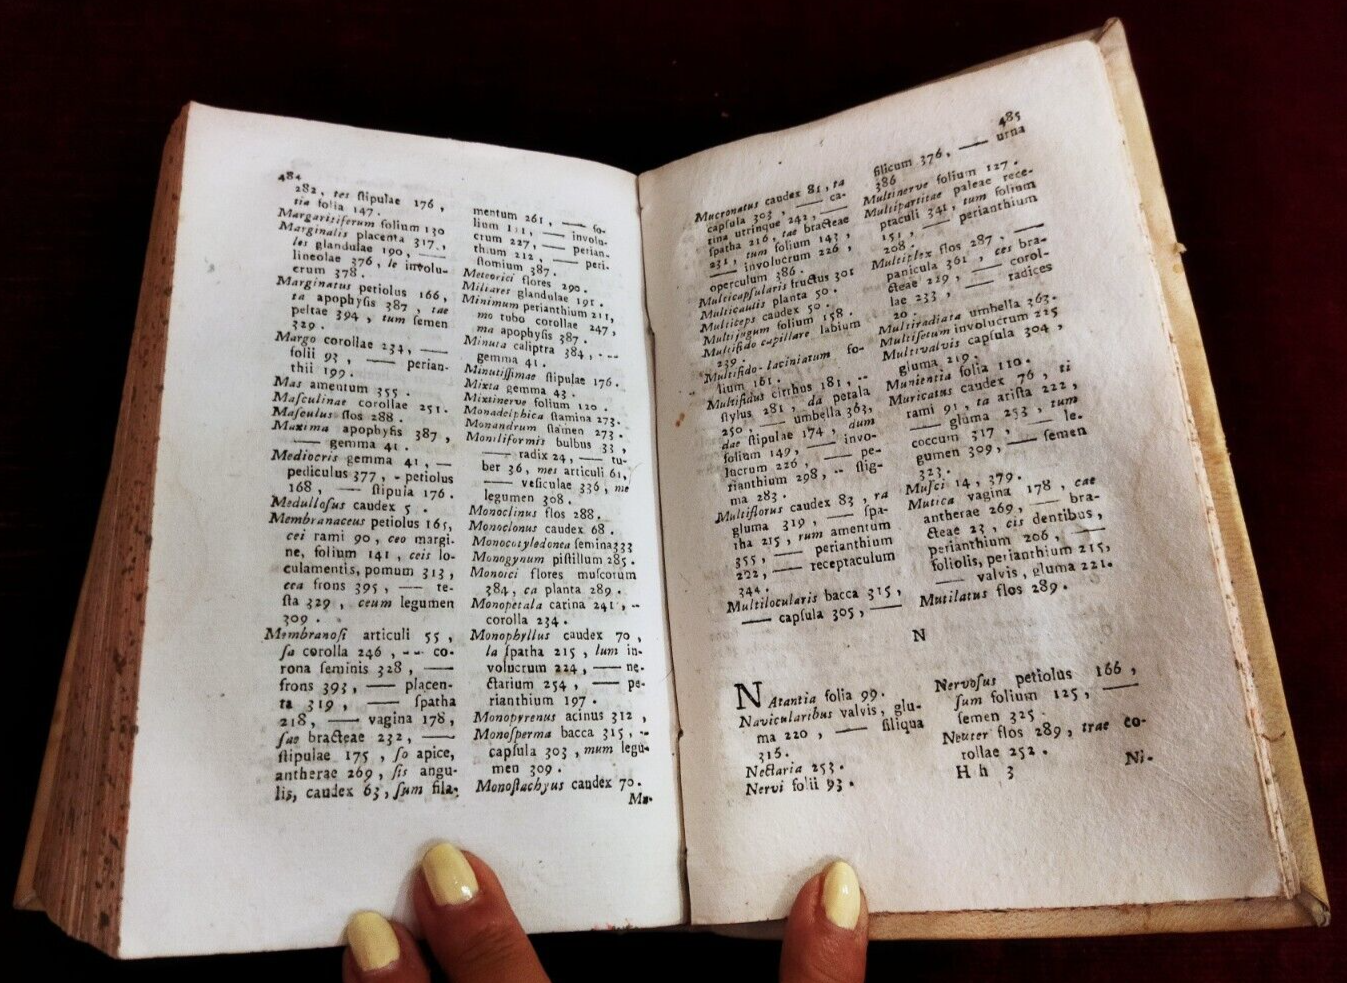 484
282, tes ſtipulae 176,
tia folia 147.
Margaritiferum folium 130
Marginalis placenta 317.,
les glandulae 190, ——
lineolae 376, le involu-
crum 378.
Marginatus petiolus 166,
ta apophyſis 387, tae
peltae 394, tum ſemen
329.
Margo corollae 234, ——
folii 93, —— perian-
thii 199.
Mas amentum 355.
Maſculinae corollae 251.
Maſculus flos 288.
Maxima apophyſis 387,
—— gemma 41.
Mediocris gemma 41, —
pediculus 377, - petiolus
168, —— ſtipula 176.
Medulloſus caudex 5.
Membranaceus petiolus 165,
cei rami 90, ceo margi-
ne, folium 141, ceis lo-
culamentis, pomum 313,
cea frons 395, —— te-
ſta 329, ceum legumen
309.
Membranoſi articuli 55,
ſa corolla 246, -- co-
rona ſeminis 328, ——
frons 393, —— placen-
ta 319, —— ſpatha
218, —— vagina 178,
ſae bracteae 232, ——
ſtipulae 175, ſo apice,
antherae 269, ſis angu-
lis, caudex 63, ſum fila-
mentum 261, —— fo-
lium 111, —— involu-
crum 227, —— perian-
thium 212, —— peri-
ſtomium 387.
Meteorici flores 290.
Miliares glandulae 191.
Minimum perianthium 211,
mo tubo corollae 247,
ma apophyſis 387.
Minuta caliptra 384, --
gemma 41.
Minutiſſimae ſtipulae 176.
Mixta gemma 43.
Mixtinerve folium 120.
Monadelphica ſtamina 273.
Monandrum ſtamen 273.
Moniliformis bulbus 33,
—— radix 24, —— tu-
ber 36, mes articuli 61,
—— veſiculae 336, me
legumen 308.
Monoclinus flos 288.
Monoclonus caudex 68.
Monocotyledonea ſemina 333
Monogynum piſtillum 285.
Monoici flores muſcorum
384, ca planta 289.
Monopetala carina 241, --
corolla 234.
Monophyllus caudex 70,
la ſpatha 215, lum in-
volucrum 224, —— ne-
ctarium 254, —— pe-
rianthium 197.
Monopyrenus acinus 312,
Monoſperma bacca 315, --
capſula 303, mum legu-
men 309.
Monoſtachyus caudex 70.
485
Mucronatus caudex 81, ta
capſula 303, —— ca-
rina utrinque 242, ——
ſpatha 216, tae bracteae
231, tum folium 143,
—— involucrum 226,
operculum 386.
Multicapſularis fructus 301
Multicaulis planta 50.
Multiceps caudex 50.
Multijugum folium 158.
Multifido capillare labium
239.
Multifido-laciniatum fo-
lium 161.
Multifidus cirrhus 181, --
ſtylus 281, da petala
250, —— umbella 363,
dae ſtipulae 174, dum
folium 149, —— invo-
lucrum 226, —— pe-
rianthium 298, -- ſtig-
ma 283.
Multiflorus caudex 83, ra
gluma 319, —— ſpa-
tha 215, rum amentum
355, —— perianthium
222, —— receptaculum
344.
Multilocularis bacca 315,
—— capſula 305, ——
ſilicum 376, —— urna
386
Multinerve folium 127.
Multipartitae paleae rece-
ptaculi 341, tum folium
151, —— perianthium
208.
Multiplex flos 287. ——
panicula 361, ces bra-
cteae 229, —— corol-
lae 233, —— radices
20.
Multiradiata umbella 363.
Multiſetum involucrum 225
Multivalvis capſula 304,
gluma 219.
Munientia folia 110.
Muricatus caudex 76, ti
rami 91, ta ariſta 222,
—— gluma 253, tum
coccum 317, —— le-
gumen 309, —— ſemen
323.
Muſci 14, 379.
Mutica vagina 178, cae
antherae 269, —— bra-
cteae 23, cis dentibus,
perianthium 206, ——
foliolis, perianthium 215,
—— valvis, gluma 221.
Mutilatus flos 289.
N
NAtantia folia 99.
Navicularibus valvis, glu-
ma 220, —— ſiliqua
316.
Nectaria 253.
Nervi folii 93.
Nervoſus petiolus 166,
ſum folium 125, ——
ſemen 325.
Neuter flos 289, trae co-
rollae 252.
H h 3
Ni-